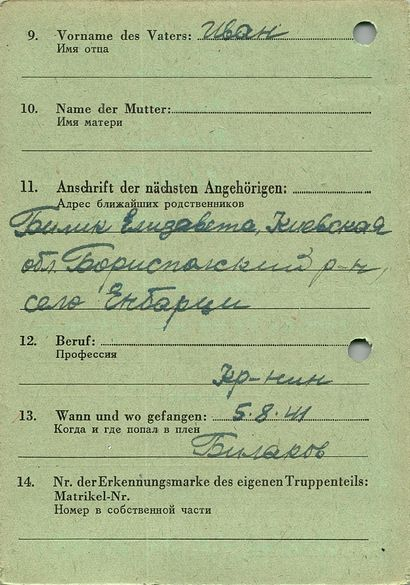 9. Vorname des Vaters: Иван
Имя отца
10. Name der Mutter:
Имя матери
11. Anschrift der nächsten Angehörigen:
Адрес ближайших родственников
Билик Елизавета, Киевская
обл. Бориспольский р-н,
село Енбарци
12. Beruf:
Профессия
Кр-нин
13. Wann und wo gefangen: 5.8.41
Когда и где попал в плен
14. Nr. der Erkennungsmarke des eigenen Truppenteils:
Matrikel-Nr.
Номер в собственной части